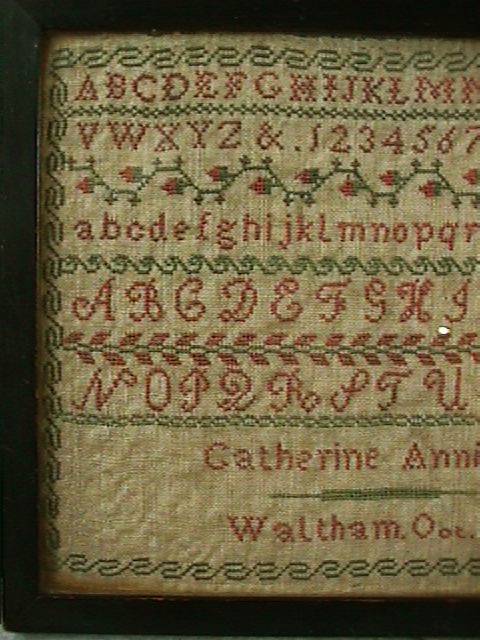 ABCDEFGHIJKLMN
VWXYZ&.1234567
abcdefghijklmnopqr
ABCDEFGHI
NOPQRSTU
Catherine Anni
Waltham. Oct.